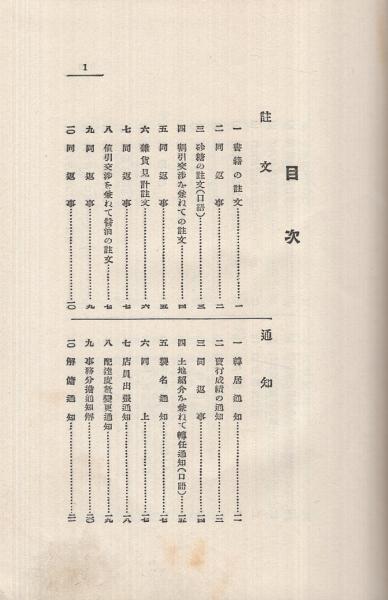 目次
註文
一 書籍の註文…………一
二 同返事…………二
三 砂糖の註文(口語)…………三
四 割引交渉を兼ねての註文…………四
五 同返事…………五
六 雜貨見計註文…………六
七 同返事…………七
八 値引交渉を兼ねて醤油の註文…………七
九 同返事…………九
一〇 同返事…………一〇
通知
一 轉居通知…………一一
二 賣行成績の通知…………一三
三 同返事…………一四
四 土地紹介を兼ねて轉任通知(口語)…………一五
五 襲名通知…………一七
六 同上…………一七
七 店員出張通知…………一八
八 配達度數變更通知…………一九
九 事務分擔通知解…………二〇
一〇 解傭通知…………二一
1